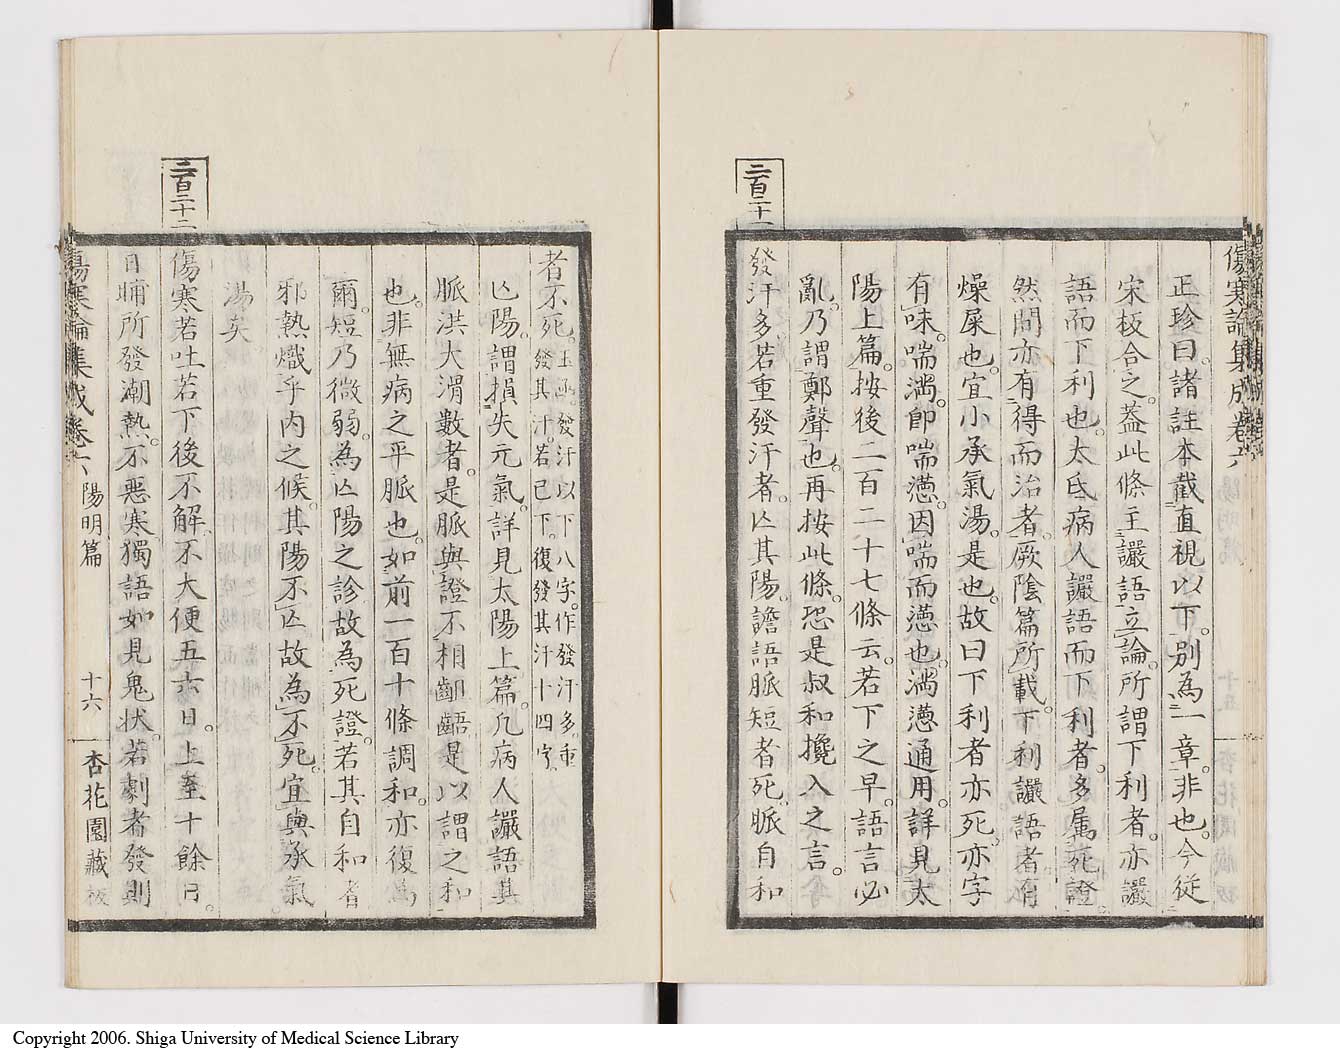 傷寒論集成卷六
正珍曰。諸註本截直視以下。別為一章非也。今從
宋板合之。蓋此條主讝語立論。所謂下利者。亦讝
語而下利也。大氐病人讝語而下利者。多属死證。
然間亦有得而治者。厥陰篇所載。下利讝語者。有
燥屎也。宜小承氣湯。是也。故曰下利者亦死。亦字
有味。喘滿。即喘懣。因喘而懣也。滿懣通用。詳見太
陽上篇。按後二百二十七條云。若下之早。語言必
亂。乃謂鄭聲也。再按此條。恐是叔和攙入之言。
二百二十一
發汗多。若重發汗者。亾其陽。譫語脈短者死。脈自和
者不死。玉函。發汗以下八字。作發汗多。重
發其汗。若已下。復發其汗十四字。
亾陽。謂損失元氣。詳見太陽上篇。凡病人讝語其
脈洪大滑數者。是脈與證不相齟齬。是以謂之和
也。非無病之平脈也。如前一百十條調和。亦復為
爾。短乃微弱。為亾陽之診。故為死證。若其自和者
邪熱熾乎内之候。其陽不亾。故為不死。宜與承氣
湯矣
二百二十二
傷寒若吐若下後不解。不大便五六日。上至十餘日。
日晡所發潮熱。不惡寒。獨語如見鬼状。若劇者發則
傷寒論集成卷六 陽明篇 十六 杏花園藏板